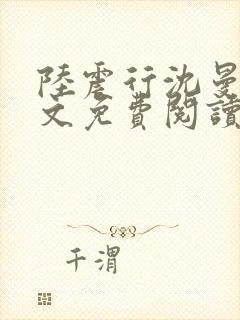 陸震行沈曼
文免費閱讀
千渭